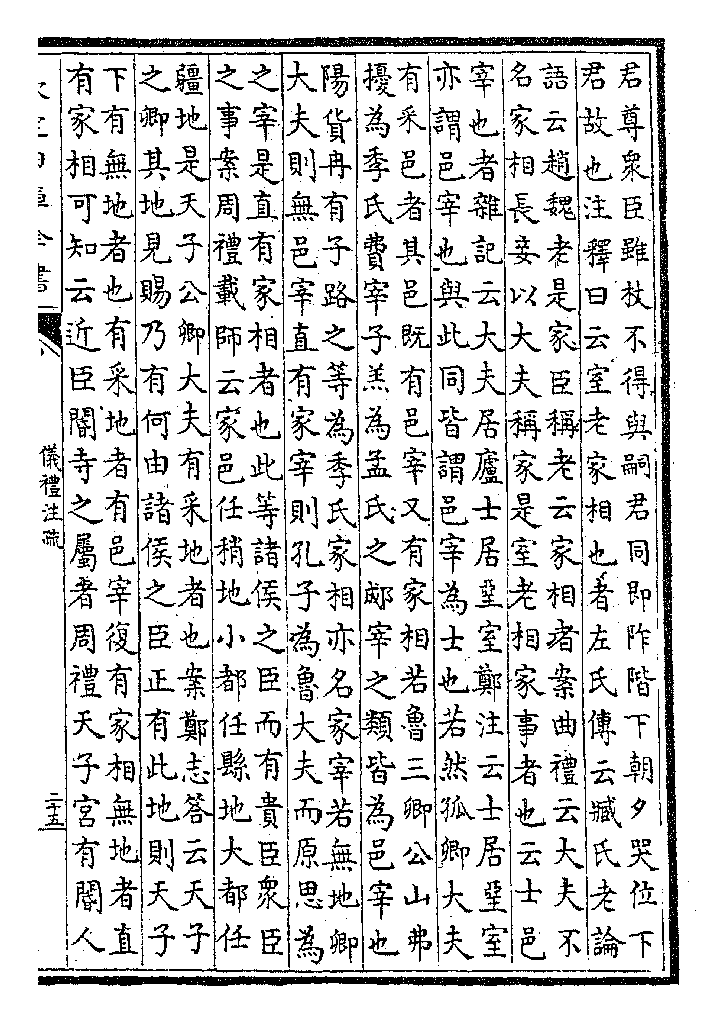 君尊衆臣雖杖不得與嗣君同即阼階下朝夕哭位下
君故也注釋曰云室老家相也者左氏傳云臧氏老論
語云趙魏老是家臣稱老云家相者案曲禮云大夫不
名家相長妾以大夫稱家是室老相家事者也云士邑
宰也者雜記云大夫居廬士居堊室鄭注云士居堊室
亦謂邑宰也與此同皆謂邑宰為士也若然孤卿大夫
有采邑者其邑既有邑宰又有家相若魯三卿公山弗
擾為季氏費宰子羔為孟氏之郕宰之類皆為邑宰也
陽貨冉有子路之等為季氏家相亦名家宰若無地卿
大夫則無邑宰直有家宰則孔子為魯大夫而原思為
之宰是直有家相者也此等諸侯之臣而有貴臣衆臣
之事案周禮載師云家邑任稍地小都任縣地大都任
疆地是天子公卿大夫有采地者也案鄭志答云天子
之卿其地見賜乃有何由諸侯之臣正有此地則天子
下有無地者也有采地者有邑宰復有家相無地者直
有家相可知云近臣閽寺之屬者周禮天子宮有閽人
欽定四庫全書
儀禮注疏
二十五